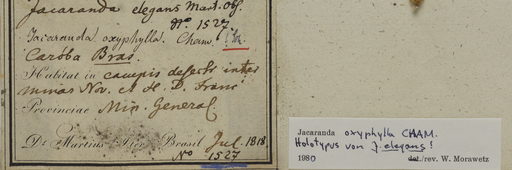 Jacaranda elegans Mart. Obs.
No. 1527.
Jacaranda oxyphylla. Cham.
Caróba Bras.
Habitat in campis defectis inter
minas Nov. et S. D. Franc
Provinciae Min. General
De Martius Iter Brasil Jul. 1818.
No 1527
Jacaranda oxyphylla CHAM.
Holotypus von J. elegans!
1980 det./rev. W. Morawetz